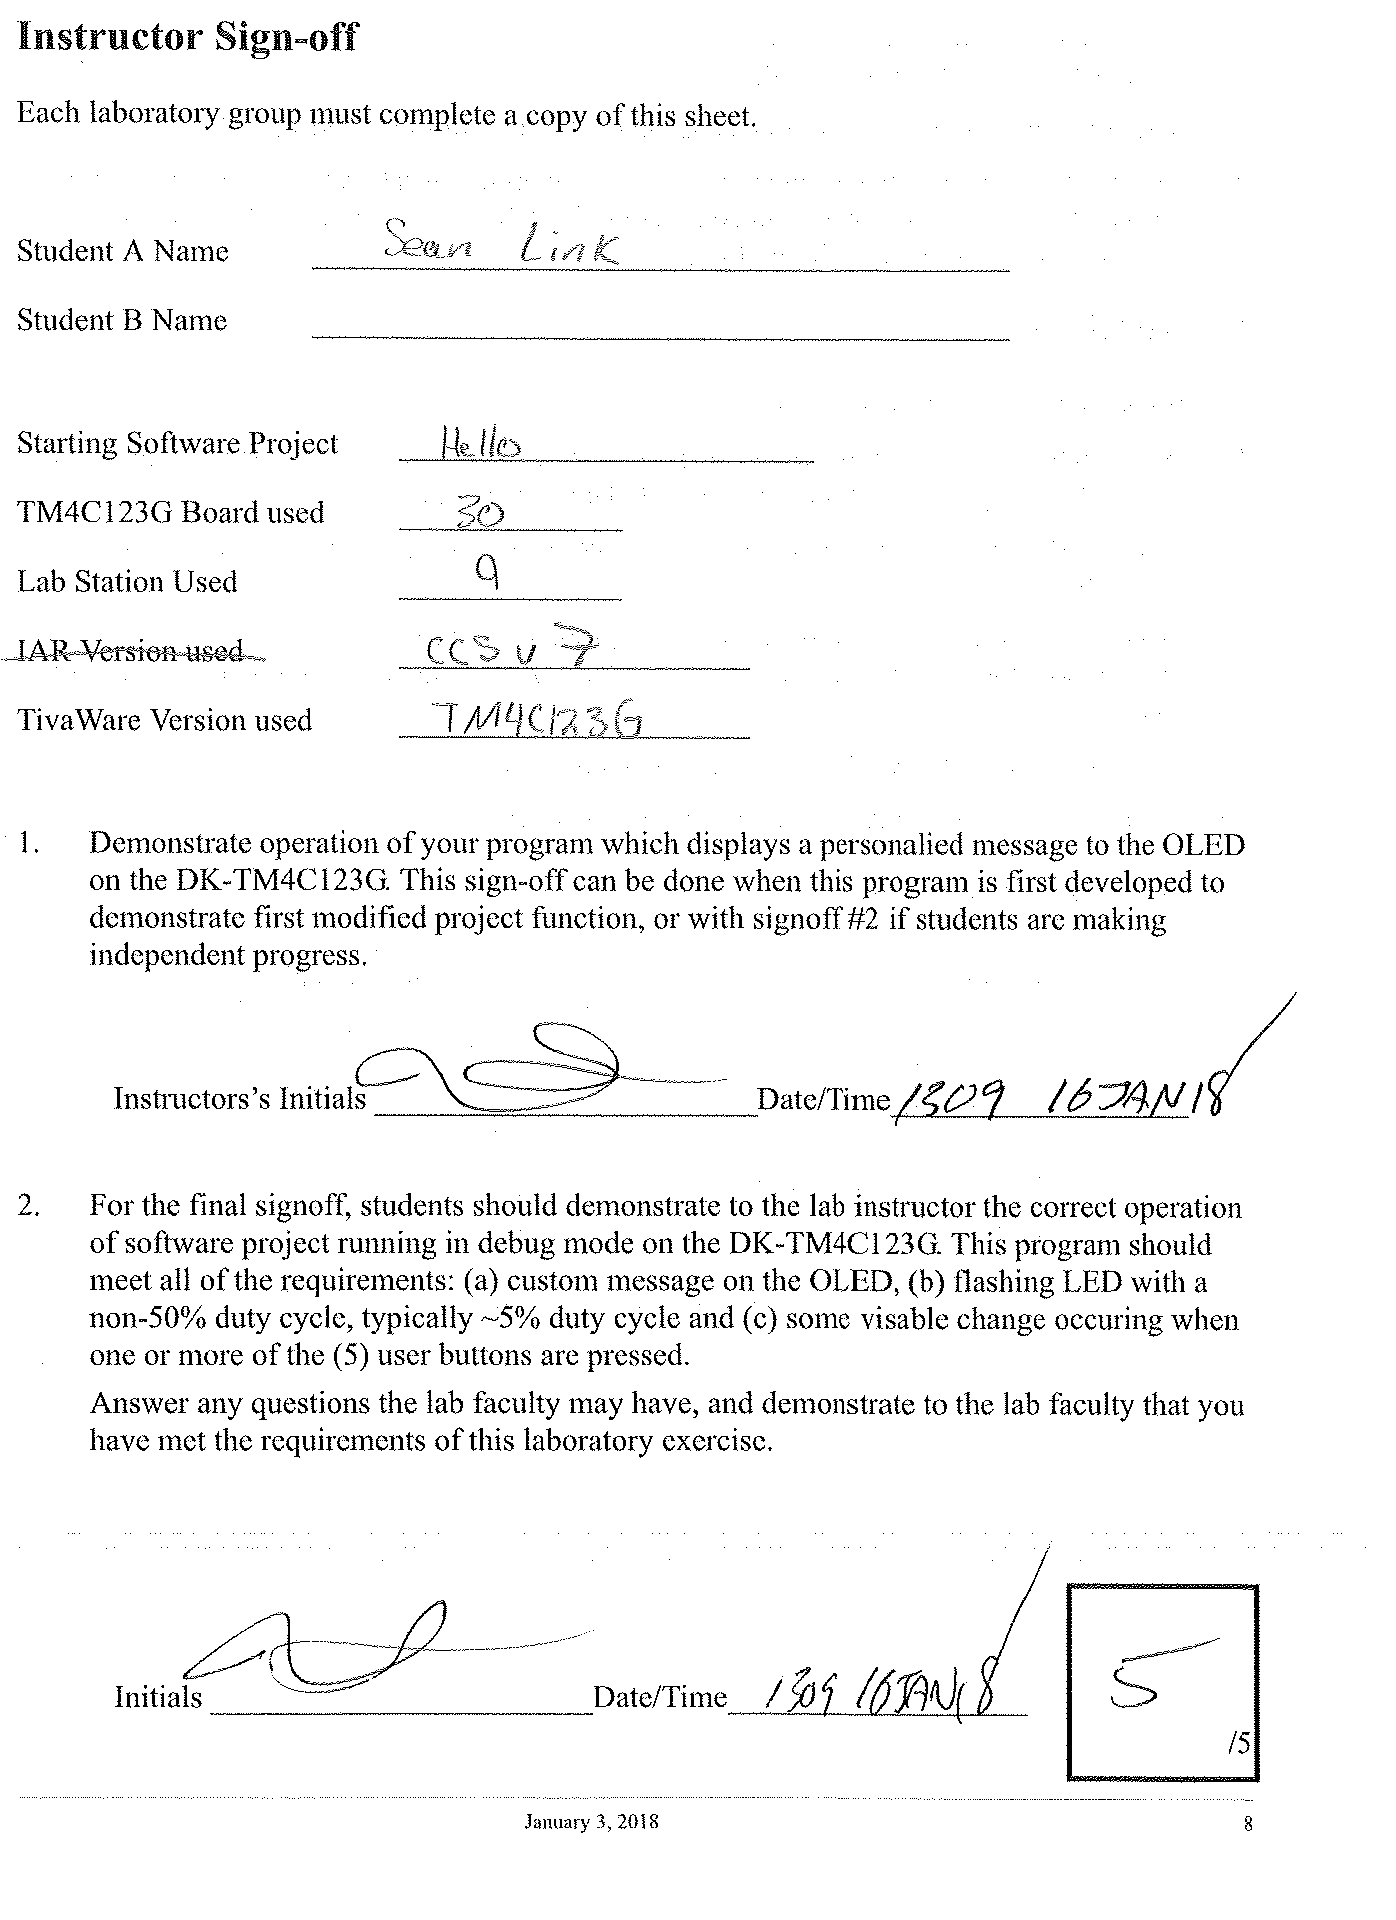 Instructor Sign-off
Each laboratory group must complete a copy of this sheet.
Student A Name Sean Link
Student B Name
Starting Software Project Hello
TM4C123G Board used 30
Lab Station Used 9
IAR Version used CCS v 7
TivaWare Version used TM4C123G
1. Demonstrate operation of your program which displays a personalied message to the OLED
on the DK-TM4C123G. This sign-off can be done when this program is first developed to
demonstrate first modified project function, or with signoff #2 if students are making
independent progress.
Instructors's Initials Date/Time 1309 16JAN18
2. For the final signoff, students should demonstrate to the lab instructor the correct operation
of software project running in debug mode on the DK-TM4C123G. This program should
meet all of the requirements: (a) custom message on the OLED, (b) flashing LED with a
non-50% duty cycle, typically ~5% duty cycle and (c) some visable change occuring when
one or more of the (5) user buttons are pressed.
Answer any questions the lab faculty may have, and demonstrate to the lab faculty that you
have met the requirements of this laboratory exercise.
Initials Date/Time 1309 16JAN18
5
/5
January 3, 2018 8